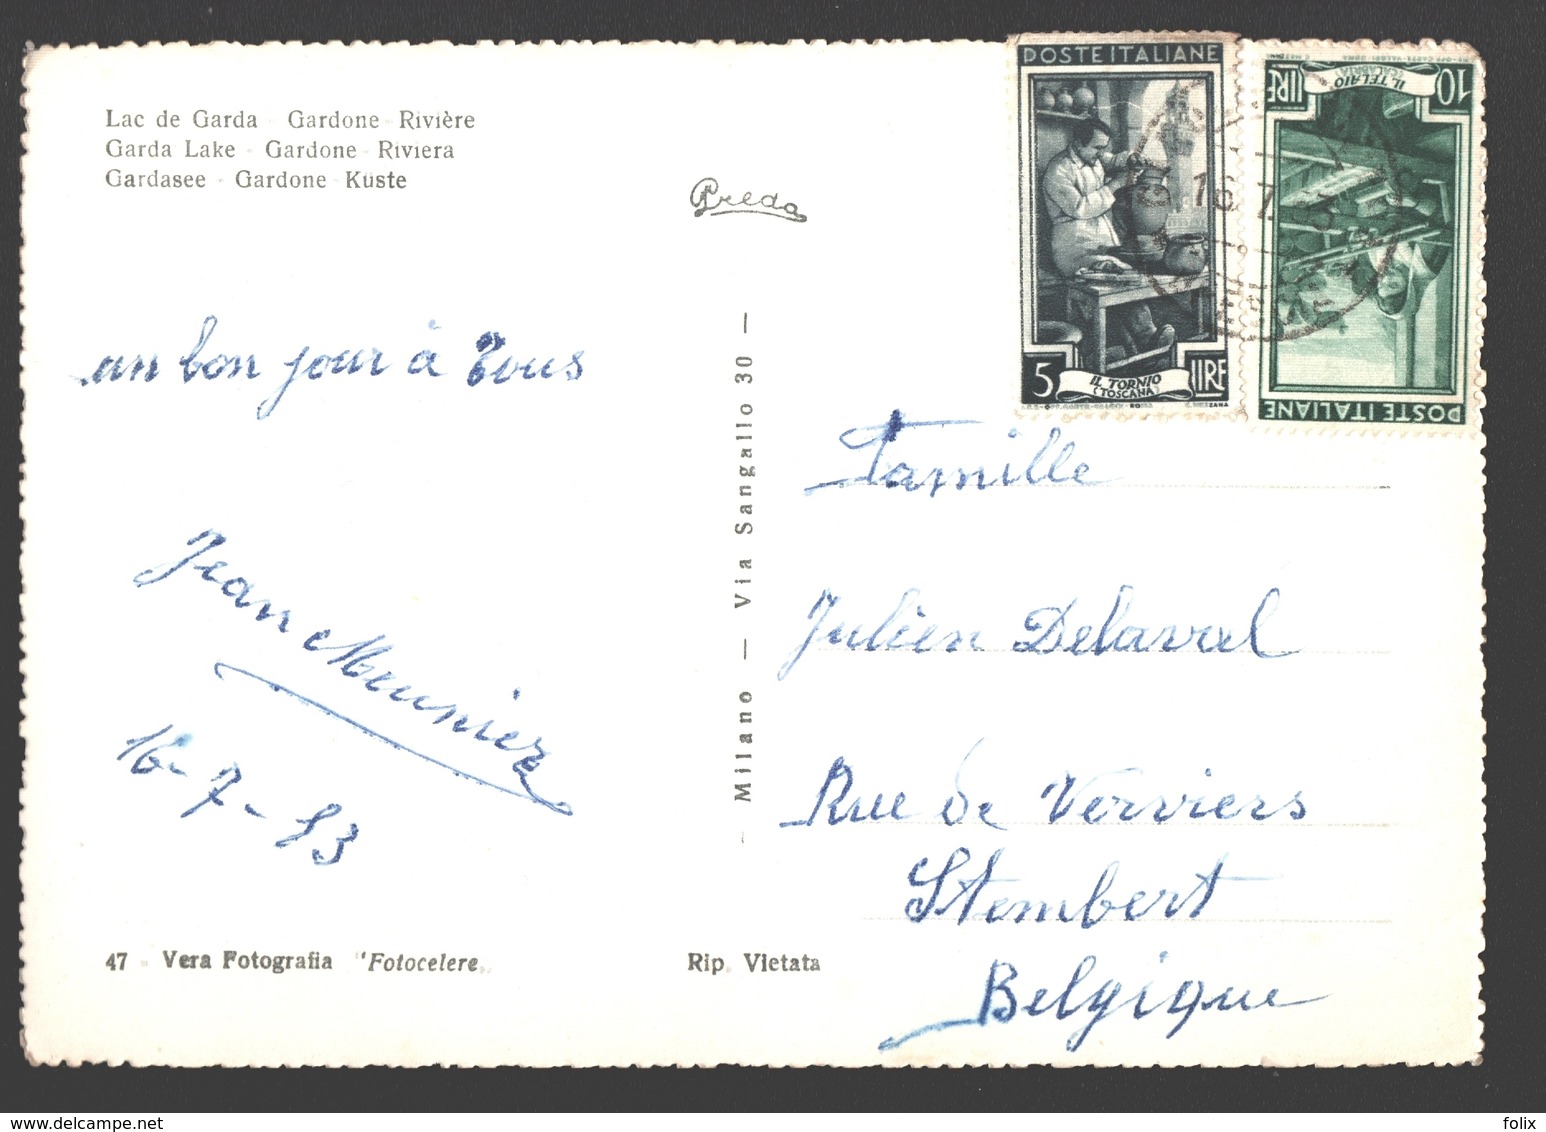 Lac de Garda - Gardone Rivière
Garda Lake - Gardone Riviera
Gardasee - Gardone Küste
Preda
POSTE ITALIANE
5 LIRE
IL TORNIO
(TOSCANA)
10 LIRE
IL TELAIO
(CALABRIA)
POSTE ITALIANE
16.7
un bon jour à Tous
Jean Meunier
16-7-53
Milano — Via Sangallo 30 —
Famille
Julien Delaval
Rue de Verviers
Stembert
Belgique
47 - Vera Fotografia "Fotocelere"
Rip. Vietata
folix